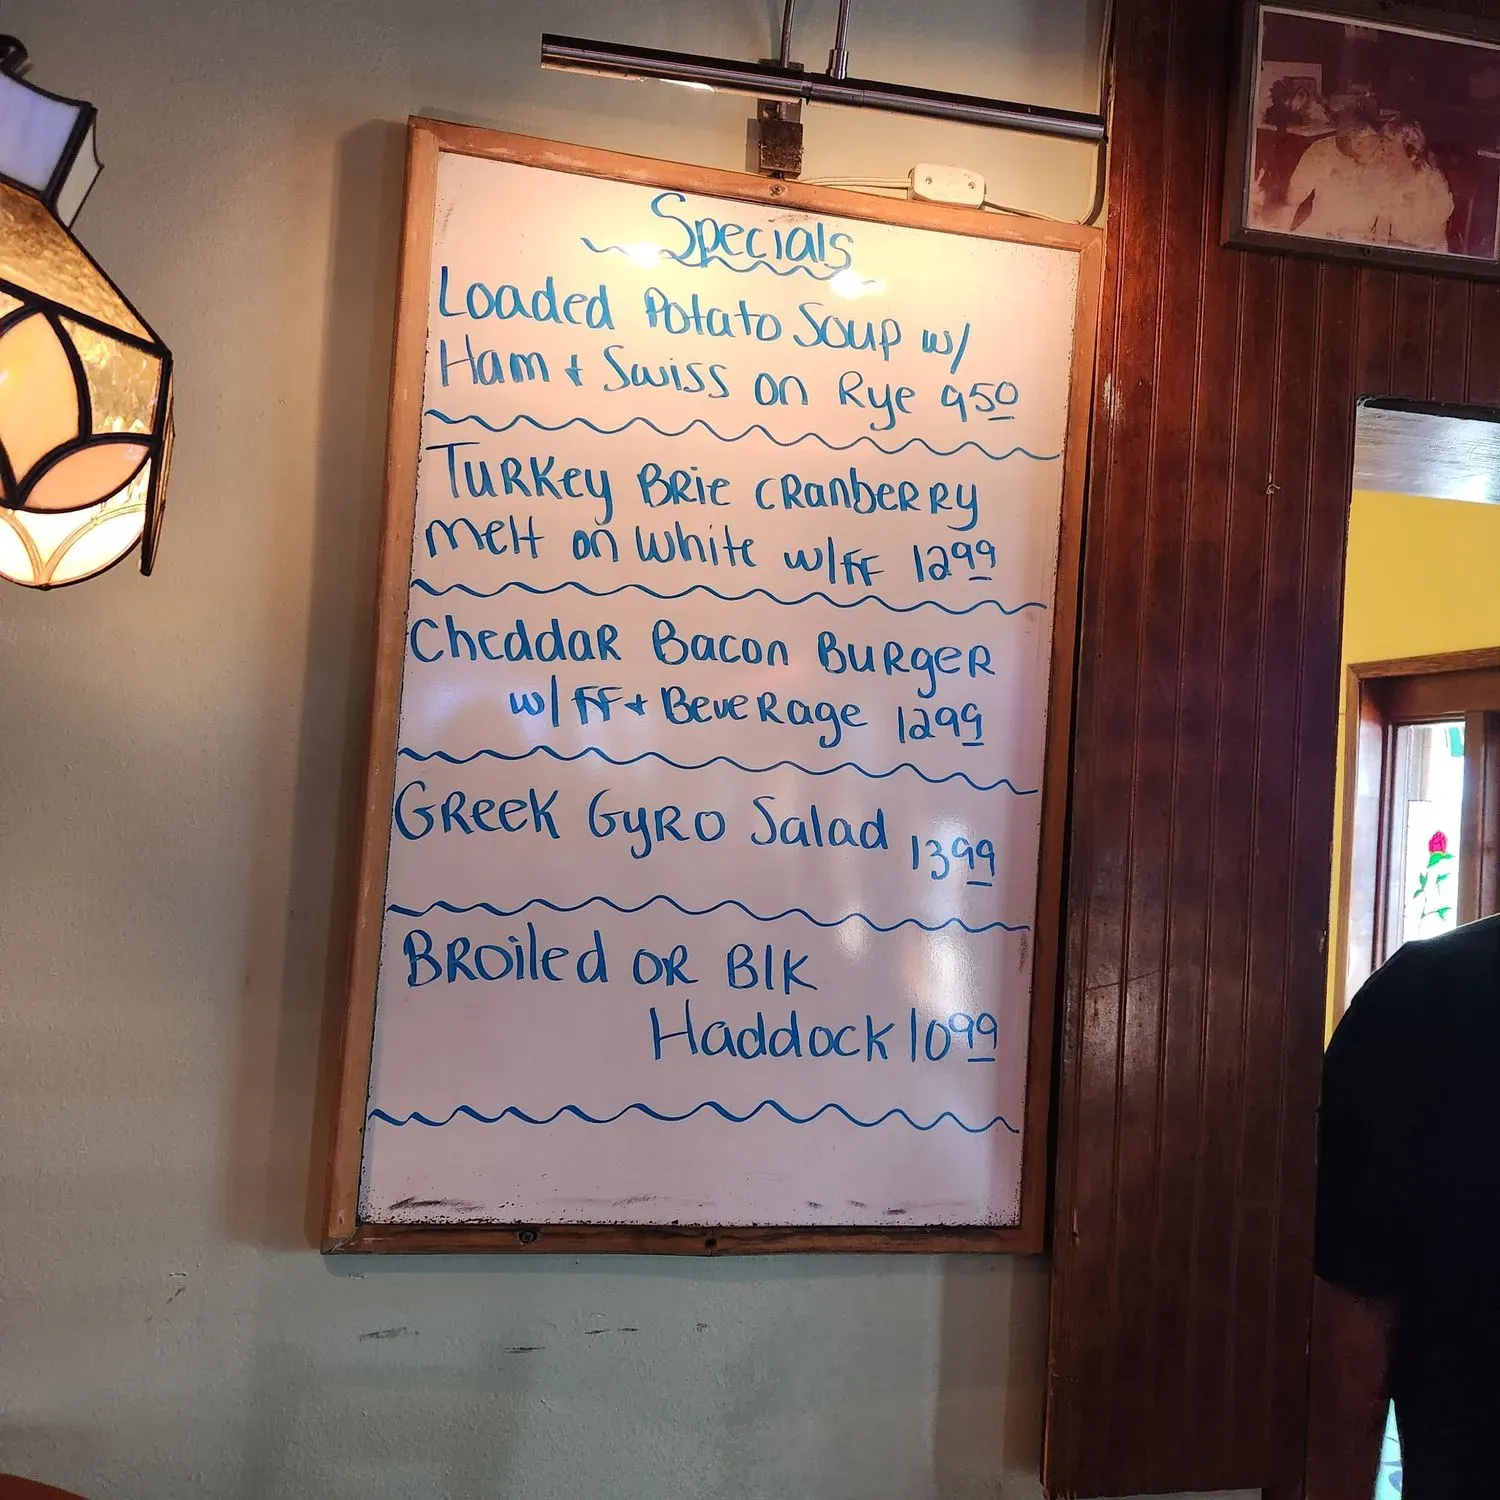 Specials
Loaded Potato Soup w/
Ham + Swiss on Rye 950
Turkey Brie Cranberry
melt on white w/FF 1299
Cheddar Bacon Burger
w/ FF + Beverage 1299
Greek Gyro Salad 1399
Broiled or Blk
Haddock 1099